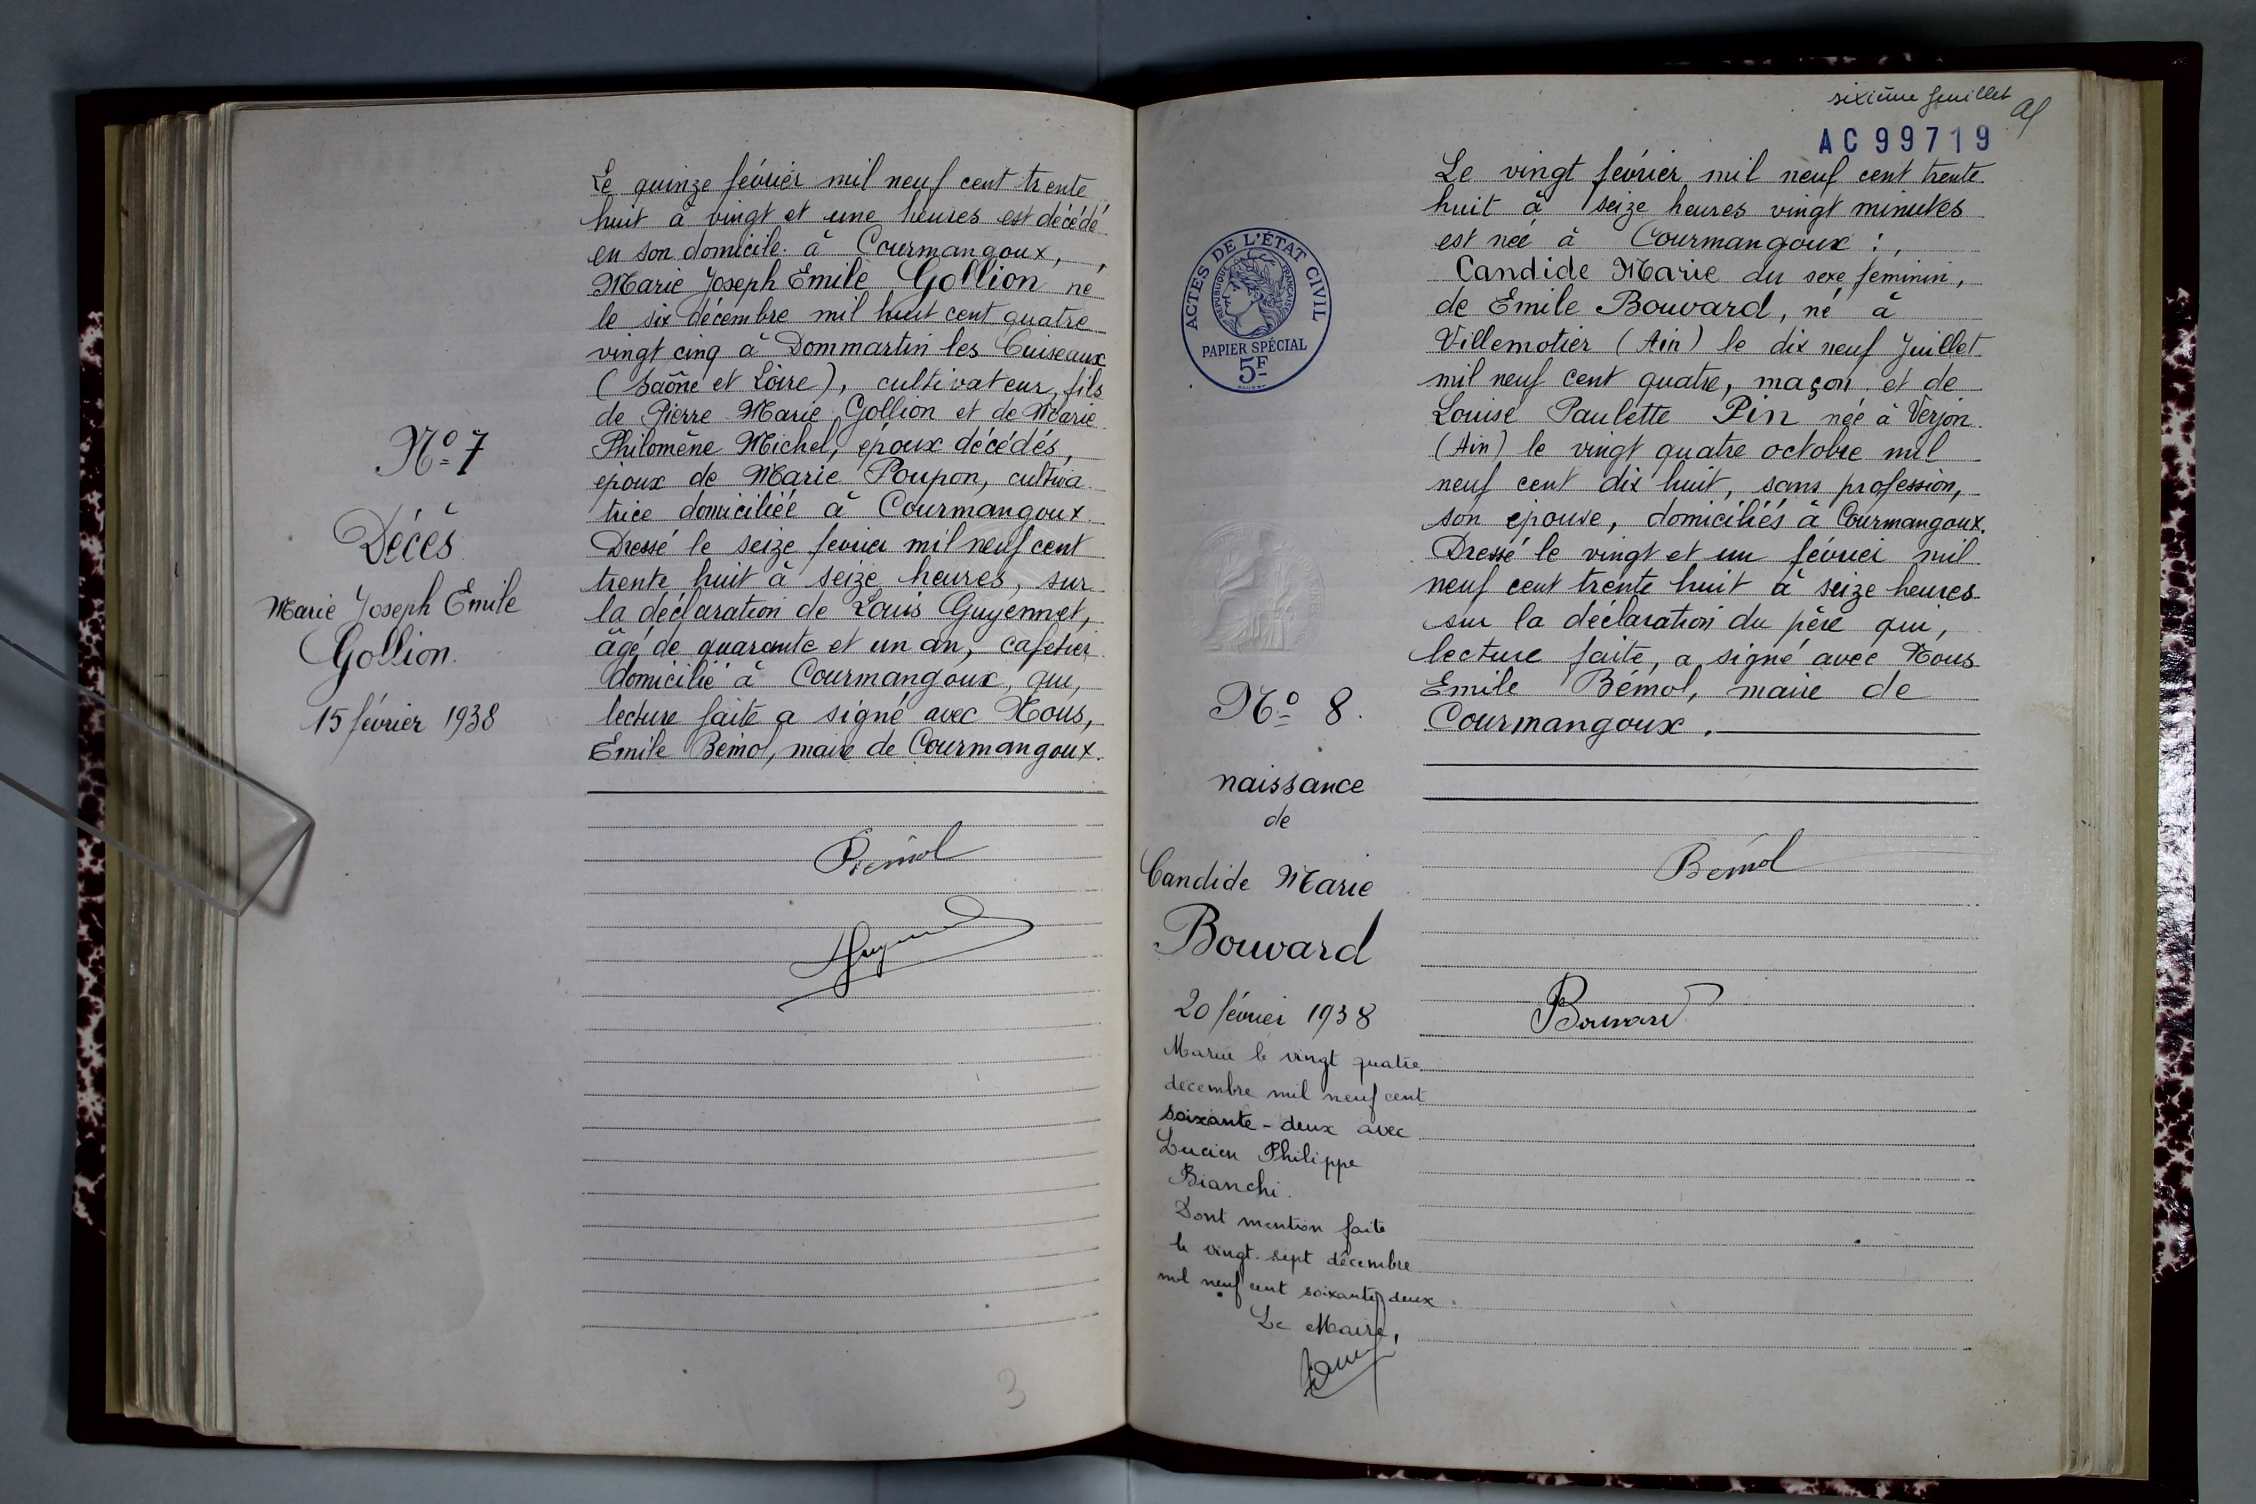 Le quinze février mil neuf cent trente
huit à vingt et une heures est décédé
en son domicile à Courmangoux,
Marie Joseph Emile Gollion né
le six décembre mil huit cent quatre
vingt cinq à Dommartin les Cuiseaux
(Saône et Loire), cultivateur, fils
de Pierre Marie Gollion et de Marie
Philomène Michel, époux décédés,
époux de Marie Poupon, cultiva
trice domiciliée à Courmangoux.
Dressé le seize février mil neuf cent
trente huit à seize heures, sur
la déclaration de Louis Guyennet,
âgé de quarante et un an, cafetier
domicilié à Courmangoux, qui,
lecture faite a signé avec Nous,
Emile Bémol, maire de Courmangoux.
Bémol
No 7
Décès
Marie Joseph Emile
Gollion.
15 février 1938
3
sixième feuillet
AC99719
ACTES DE L'ÉTAT CIVIL
RÉPUBLIQUE FRANÇAISE
PAPIER SPÉCIAL
5F
No 8.
naissance
de
Candide Marie
Bouvard
20 février 1938
Mariée le vingt quatre
décembre mil neuf cent
soixante-deux avec
Lucien Philippe
Bianchi.
Dont mention faite
le vingt-sept décembre
mil neuf cent soixante deux.
Le Maire,
Le vingt février mil neuf cent trente
huit à seize heures vingt minutes
est née à Courmangoux :,
Candide Marie du sexe féminin,
de Emile Bouvard, né à
Villemotier (Ain) le dix neuf Juillet
mil neuf cent quatre, maçon et de
Louise Paulette Pin née à Verjon
(Ain) le vingt quatre octobre mil
neuf cent dix huit, sans profession,
son épouse, domiciliés à Courmangoux.
Dressé le vingt et un février mil
neuf cent trente huit à seize heures
sur la déclaration du père qui,
lecture faite, a signé avec Nous
Emile Bémol, maire de
Courmangoux.
Bémol
Bouvard